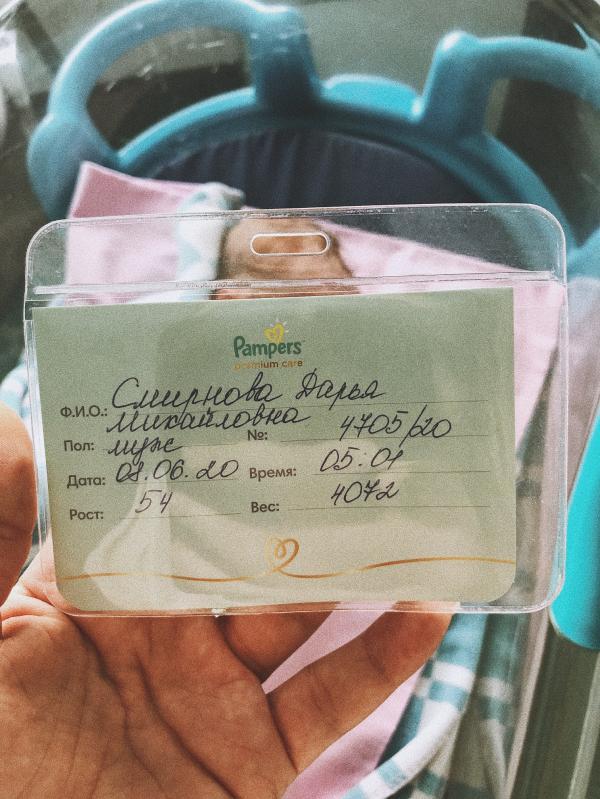 Pampers
premium care
Ф.И.О.: Смирнова Дарья
Михайловна
Пол: муж №: 4705/20
Дата: 08.06.20 Время: 05:01
Рост: 54 Вес: 4072